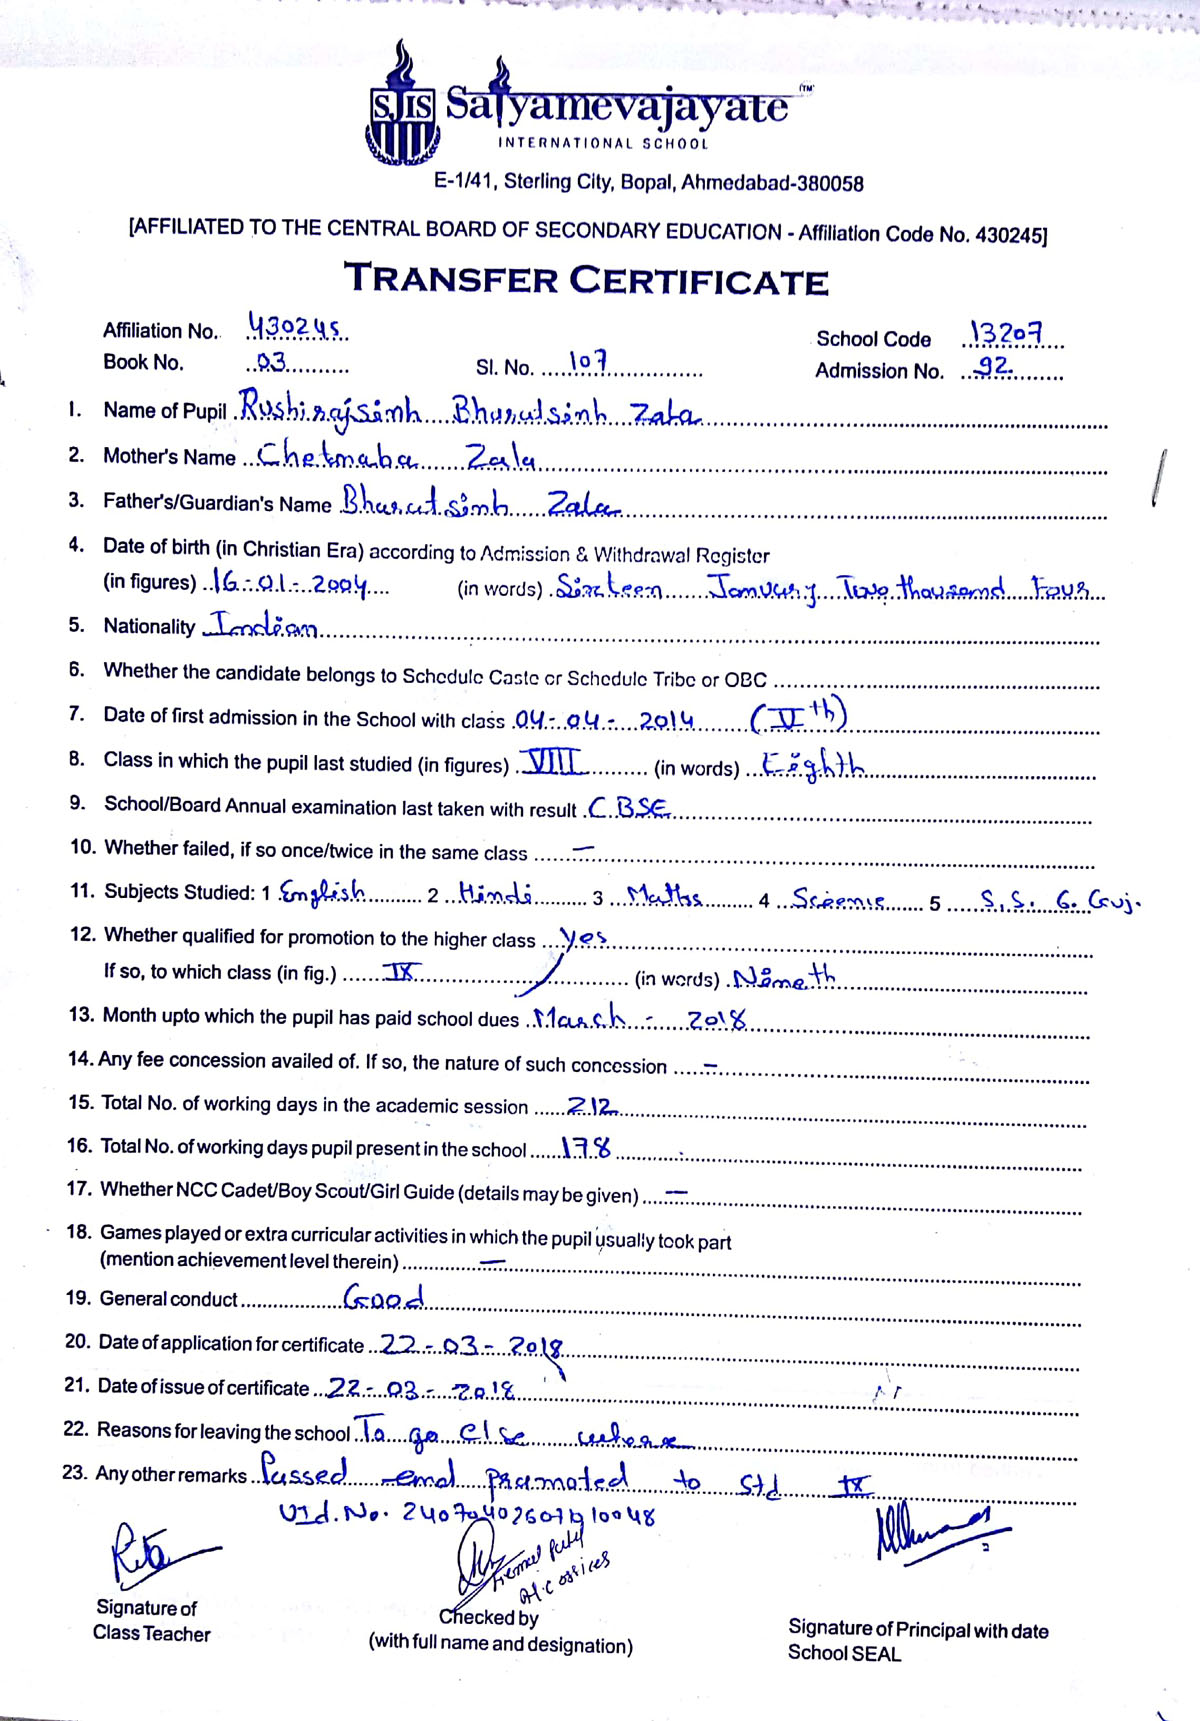 SJIS Satyamevajayate TM
INTERNATIONAL SCHOOL
E-1/41, Sterling City, Bopal, Ahmedabad-380058
[AFFILIATED TO THE CENTRAL BOARD OF SECONDARY EDUCATION - Affiliation Code No. 430245]
TRANSFER CERTIFICATE
Affiliation No. 430245 School Code 13207
Book No. 03 Sl. No. 107 Admission No. 92
1. Name of Pupil Rushirajsinh Bharatsinh Zala
2. Mother's Name Chetnaba Zala
3. Father's/Guardian's Name Bharatsinh Zala
4. Date of birth (in Christian Era) according to Admission & Withdrawal Register
(in figures) 16-01-2004 (in words) Sixteen January Two thousand Four
5. Nationality Indian
6. Whether the candidate belongs to Schedule Caste or Schedule Tribe or OBC
7. Date of first admission in the School with class 04-04-2014 (Vth)
8. Class in which the pupil last studied (in figures) VIII (in words) Eighth
9. School/Board Annual examination last taken with result CBSE
10. Whether failed, if so once/twice in the same class —
11. Subjects Studied: 1 English 2 Hindi 3 Maths 4 Science 5 S.S. 6. Guj.
12. Whether qualified for promotion to the higher class Yes
If so, to which class (in fig.) IX (in words) Nineth
13. Month upto which the pupil has paid school dues March - 2018
14. Any fee concession availed of. If so, the nature of such concession -
15. Total No. of working days in the academic session 212
16. Total No. of working days pupil present in the school 178
17. Whether NCC Cadet/Boy Scout/Girl Guide (details may be given) —
18. Games played or extra curricular activities in which the pupil usually took part
(mention achievement level therein) —
19. General conduct Good
20. Date of application for certificate 22-03-2018
21. Date of issue of certificate 22-03-2018
22. Reasons for leaving the school To go else where
23. Any other remarks Passed and promoted to Std IX
UId. No.
Rita
Signature of
Class Teacher
Checked by
(with full name and designation)
Signature of Principal with date
School SEAL